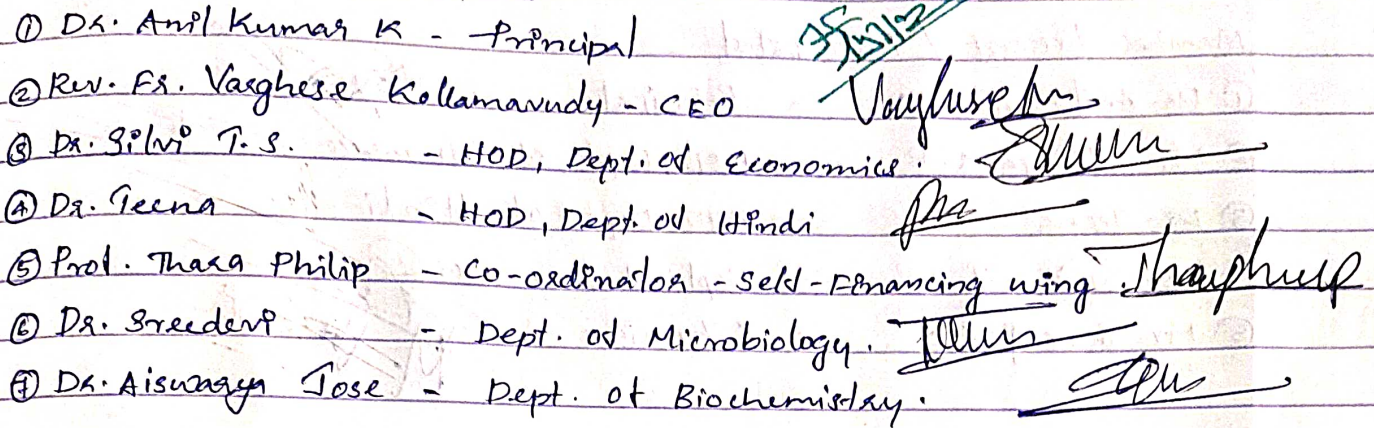 ① Dr. Anil Kumar K - Principal
② Rev. Fr. Varghese Kollamavudy - CEO
③ Dr. Silvi T. S. - HOD, Dept. of Economics.
④ Dr. Teena - HOD, Dept. of Hindi
⑤ Prof. Thara Philip - Co-ordinator - Self-Financing wing.
⑥ Dr. Sreedevi - Dept. of Microbiology.
⑦ Dr. Aiswarya Jose - Dept. of Biochemistry.